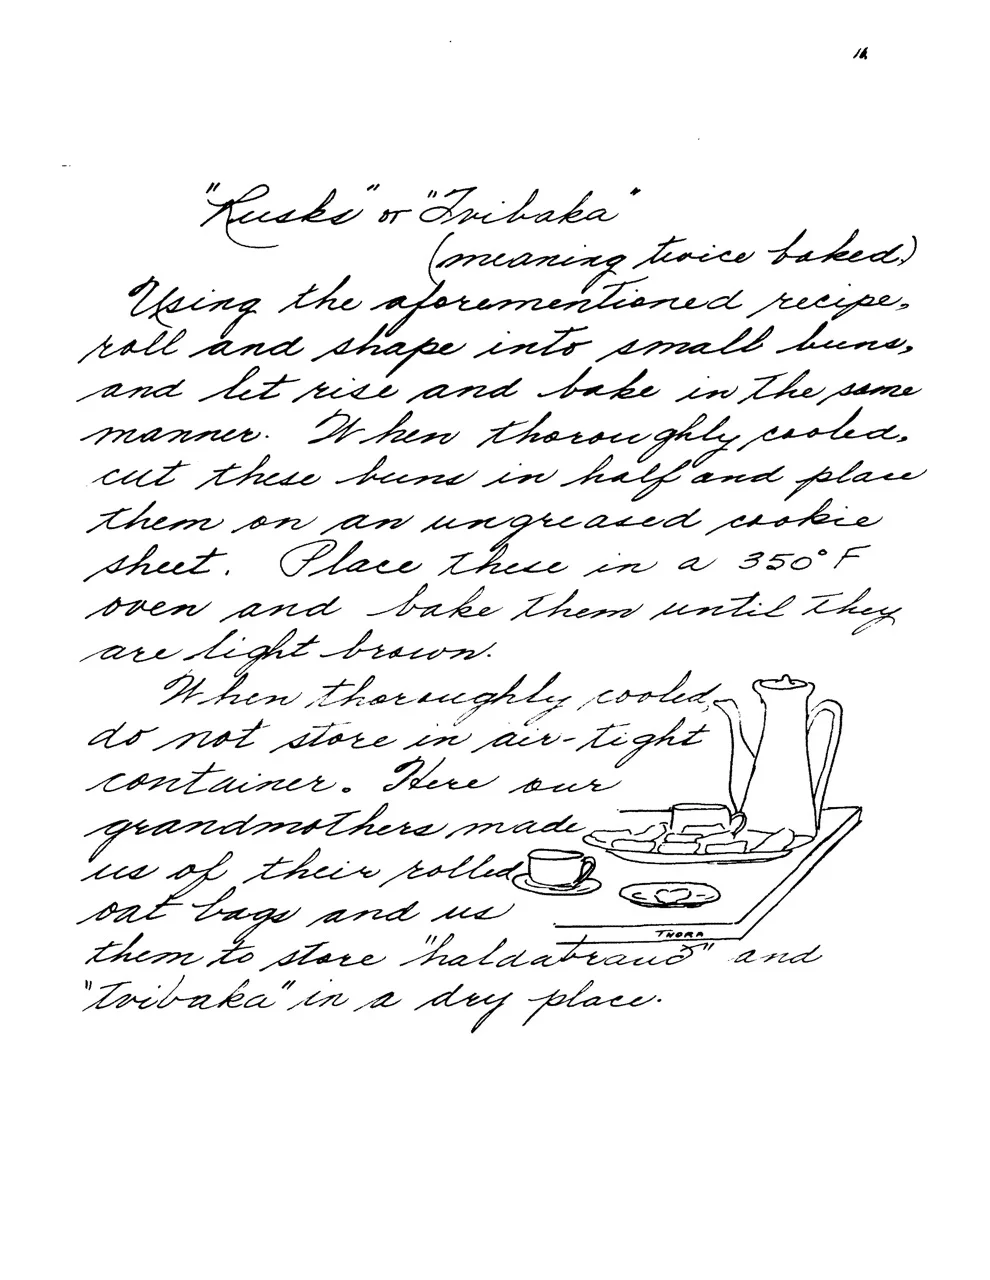 16
"Rusks" or "Tvibaka"
(meaning twice baked)
Using the aforementioned recipe,
roll and shape into small buns,
and let rise and bake in the same
manner. When thoroughly cooled,
cut these buns in half and place
them on an ungreased cookie
sheet. Place these in a 350° F
oven and bake them until they
are light brown.
When thoroughly cooled,
do not store in air-tight
container. Here our
grandmothers made
us of their rolled
oat bags and us
THORA
them to store "haldabrauð" and
"Tvibaka" in a dry place.